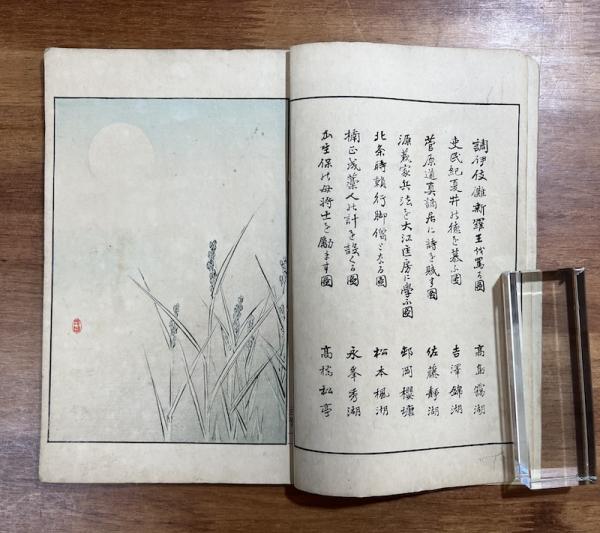 調伊伎儺新羅王を罵る圖 高島霧湖
吏民紀夏井の徳を慕ふ圖 吉澤錦湖
菅原道真謫居に詩を賦す圖 佐藤靜湖
源義家兵法を大江匡房に學ふ圖 邨岡櫻塘
北条時頼行脚僧となる圖 松本楓湖
楠正成藁人の計を設くる圖 永峯秀湖
瓜生保の母将士を勵ます圖 高橋松亭